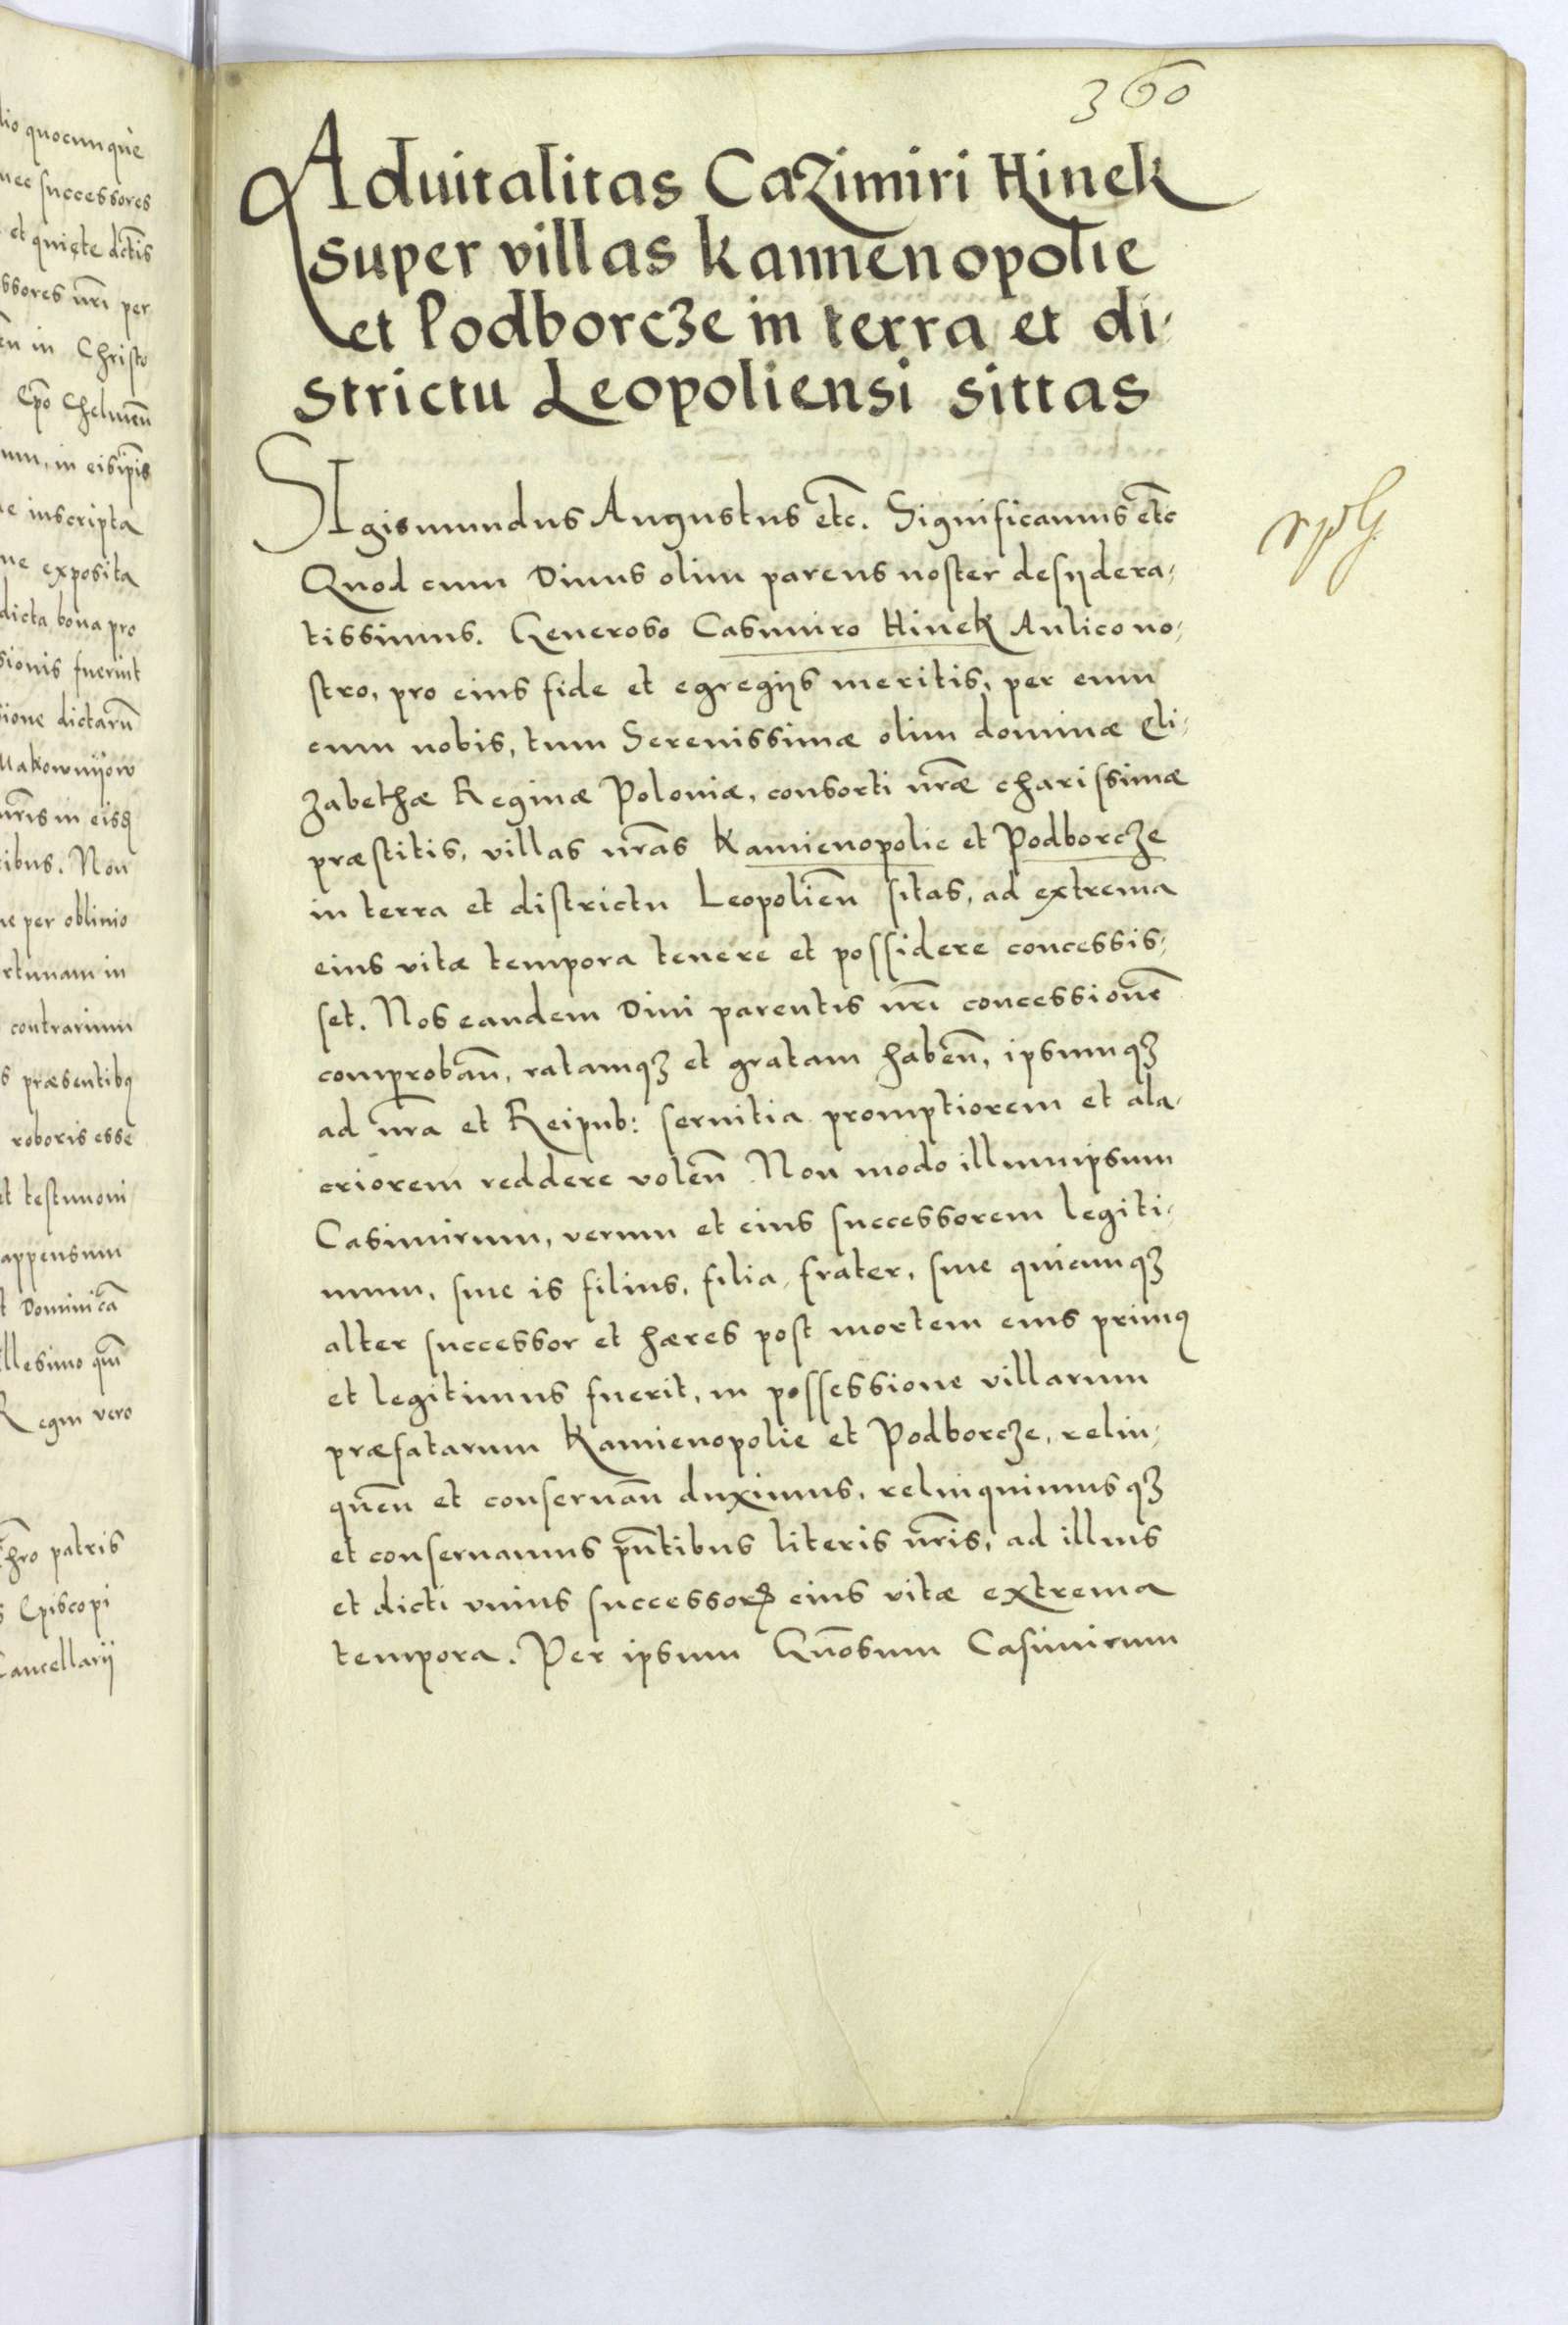 lio quocunque
nec successores
et quiete dictis
ssores nri per
in Christo
Epo Chelmen̄
um, in eisipis
e inscripta
ne exposita
dicta bona pro
sionis fuerint
sione dictaru̅
Makownijow
nris in eisq
ibus. Non
ne per oblinio
rtunam in
contrarium
s præsentibq
roboris esse
et testimoni
appensum
t Dominica
llesimo qm̄
Regni vero
patris
s Episcopi
Cancellarij
360
Aduitalitas Cazimiri Hinek
super villas kamnenopolie
et Podborcze in terra et di-
strictu Leopoliensi sittas
SIgismundus Augustus etc. Significamus etc
Quod cum Diuus olim parens noster desydera-
tissimus. Generoso Casimiro Hinek Aulico no-
stro, pro eius fide et egregijs meritis, per eum
cum nobis, tum Serenissimæ olim dominæ Eli-
zabethæ Reginæ Poloniæ, consorti nræ charissimæ
præstitis, villas nras Kamienopolie et Podborcze
in terra et districtu Leopolien̄ sitas, ad extrema
eius vitæ tempora tenere et possidere concessis-
set. Nos eandem Diui parentis nri concessione̅
comproban̄, ratamqz et gratam haben̄, ipsumqz
ad nra et Reipub: seruitia promptiorem et ala-
criorem reddere volen̄ Non modo illumipsum
Casimirum, verum et eius successorem legiti-
mum, siue is filius, filia, frater, siue quicumqz
alter successor et hæres post mortem eius primq
et legitimus fuerit, in possessione villarum
præfatarum Kamienopolie et Podborcze, relin-
quen̄ et conseruan̄ duximus, relinquimusqz
et conseruamus pn̄tibus literis nris, ad illius
et dicti vnius successorꝭ eius vitæ extrema
tempora. Per ipsum Gn̄osum Casimirum